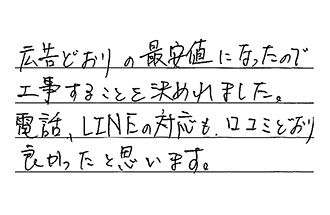 広告どおりの最安値になったので
工事することを決めれました。
電話、LINEの対応も、口コミどおり
良かったと思います。